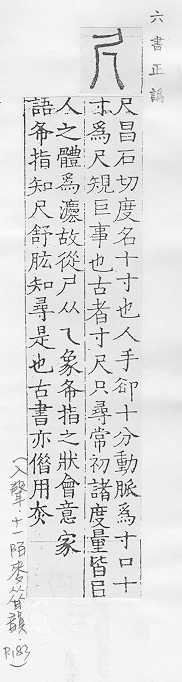 六書正譌
尺
尺昌石切度名十寸也人手卻十分動脈爲寸口十
寸爲尺規巨事也古者寸尺只尋常初諸度量皆㠯
人之體爲灋故從尸从乀象布指之狀會意家
語布指知尺舒肱知尋是也古書亦借用烾
(入聲十一陌麥昔韻
P.183)